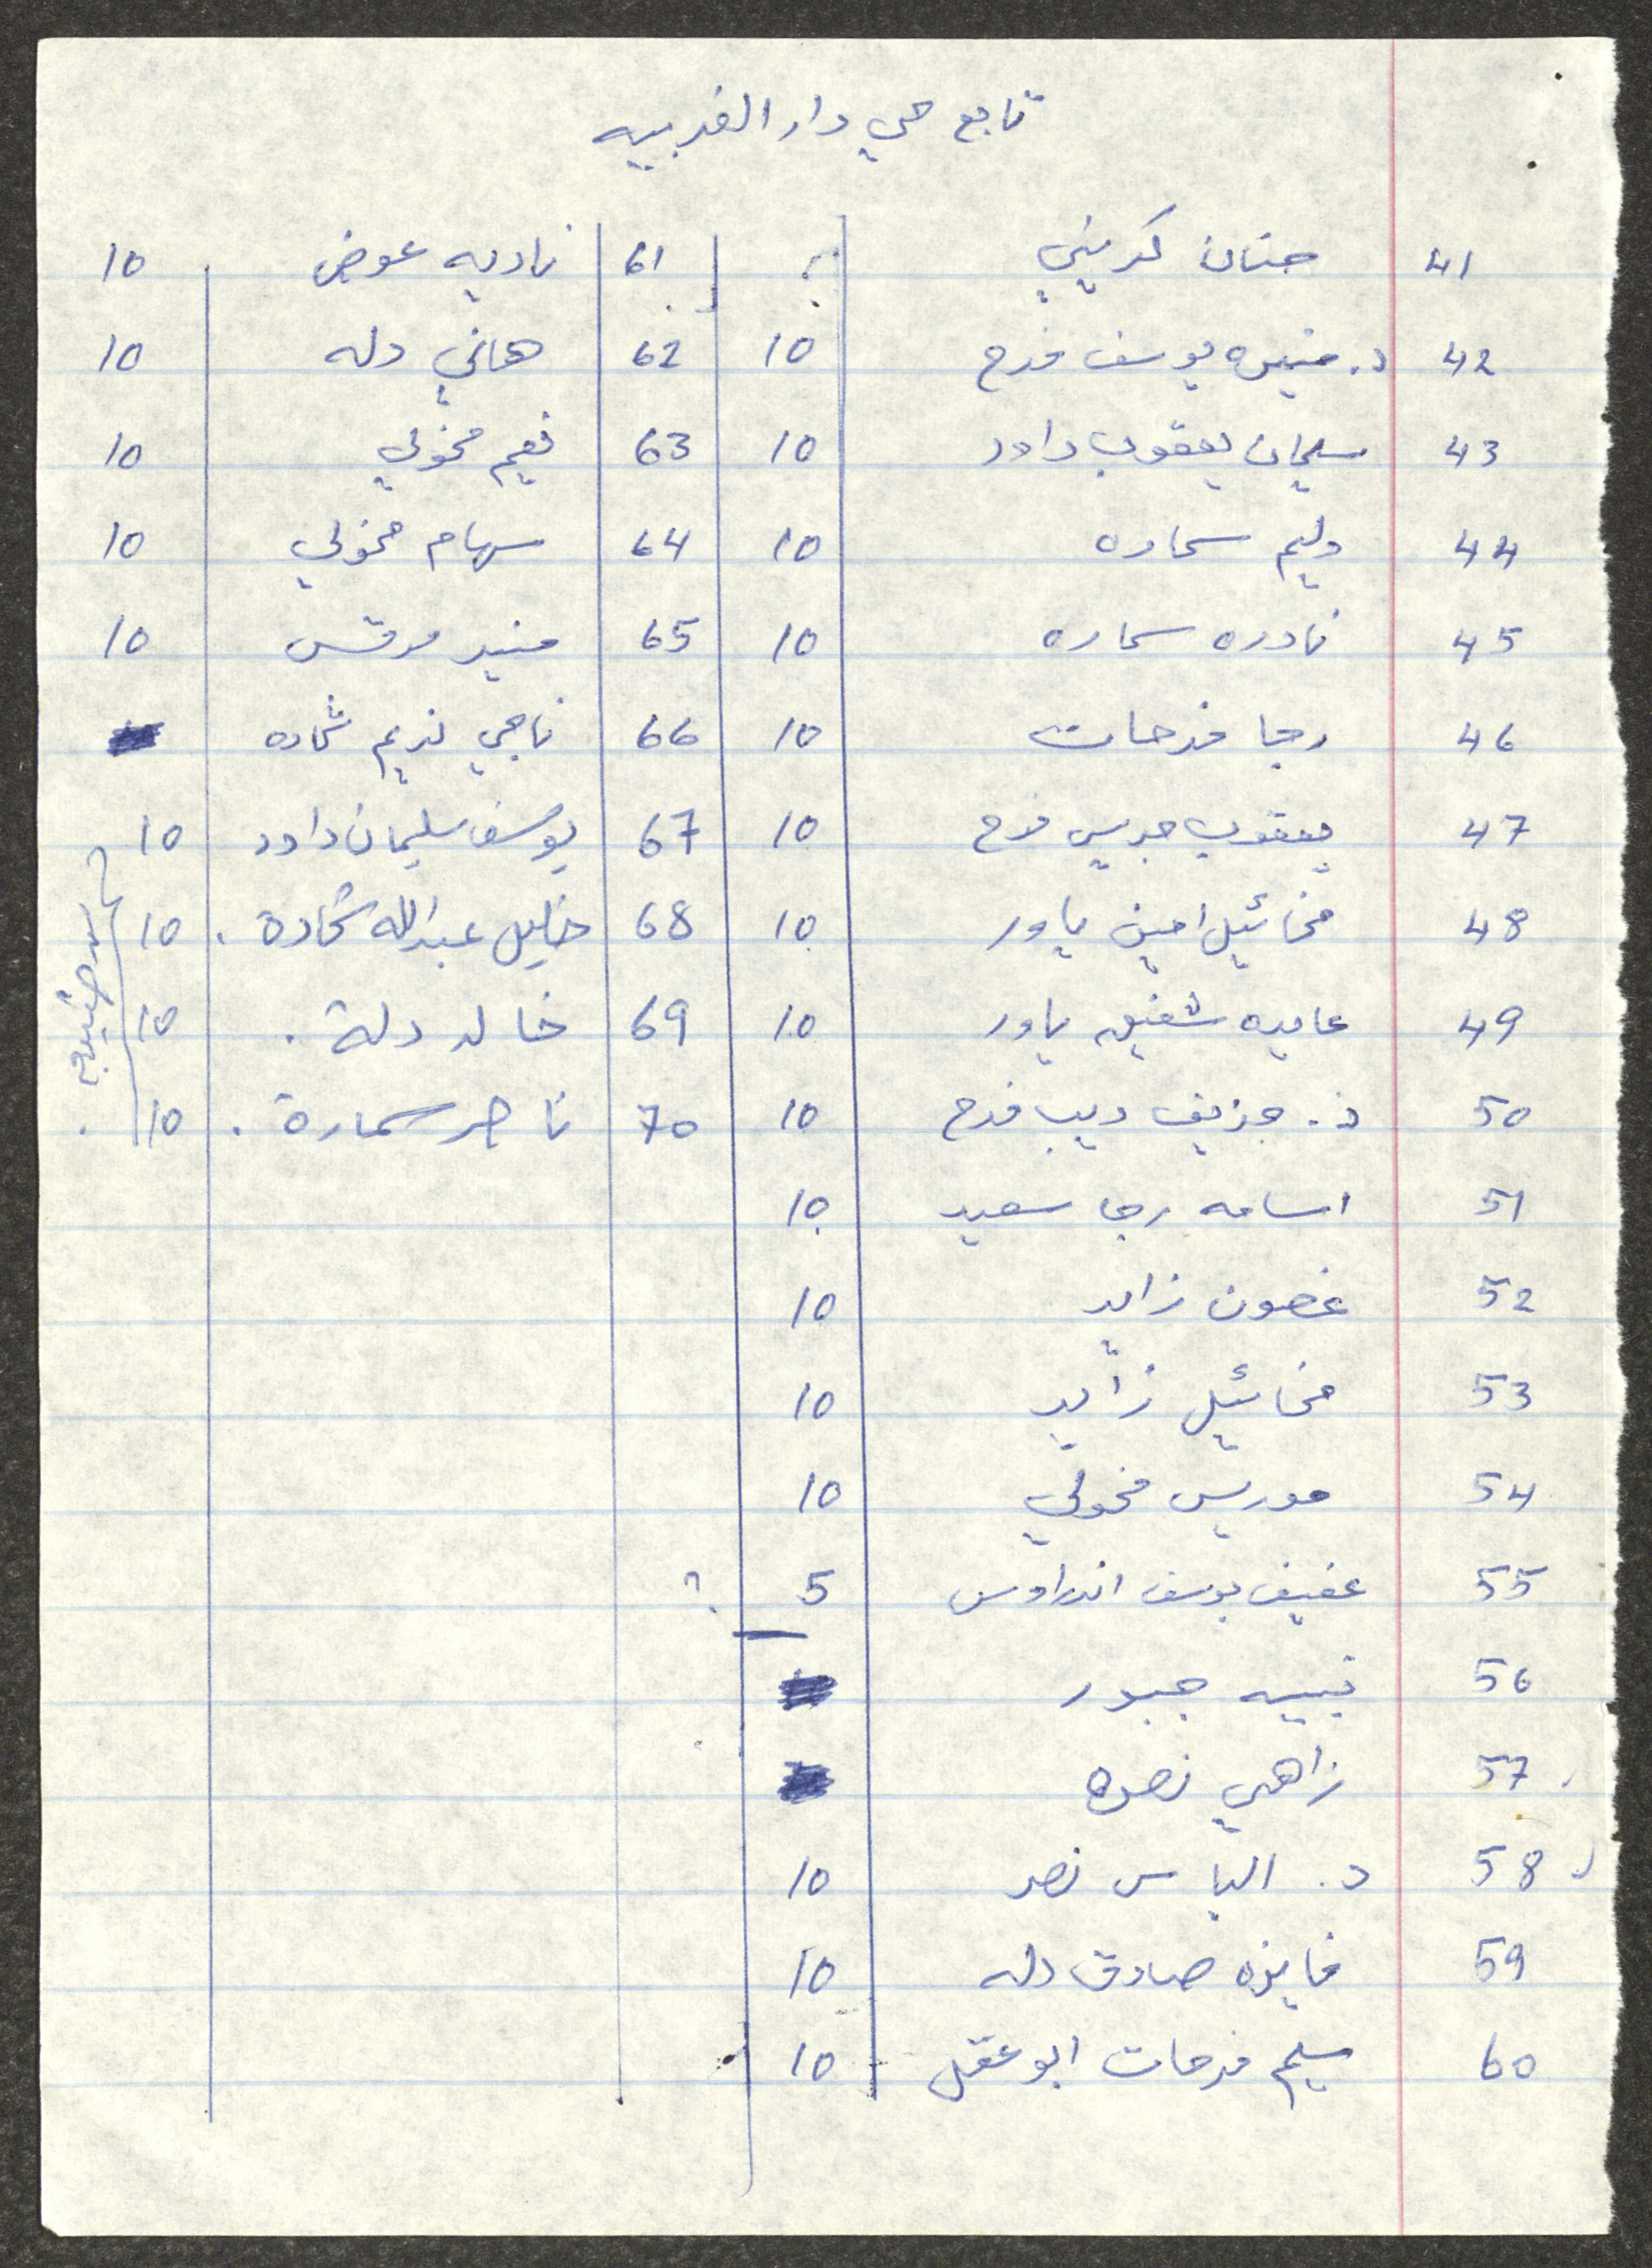 تابع حي دار الغربيه
41 حنان كريني ?
42 د. منيره يوسف فرح 10
43 سليمان يعقوب داود 10
44 وليم سماره 10
45 نادره سماره 10
46 رجا فرحات 10
47 يعقوب جريس فرح 10
48 مخائيل امين ياور 10
49 عايده شفيق ياور 10
50 د. جزيف ديب فرح 10
51 اسامه رجا سعيد 10
52 غصون زايد 10
53 مخائيل زايد 10
54 موريس مخولي 10
55 عفيف يوسف اندراوس 5 ?
56 نبيه جبور
57 زاهي نصره
58 د. الياس نصر 10
59 فايزه صادق دله 10
60 سليم فرحات ابو عقل 10
61 ناديه عوض 10
62 هاني دله 10
63 نعيم مخولي 10
64 سهام مخولي 10
65 منير مرقس 10
66 ناجي نديم شحاده
67 يوسف سليمان داود 10
68 خليل عبدالله شحادة . 10
69 خالد دلة . 10
70 ناصر سمارة . 10